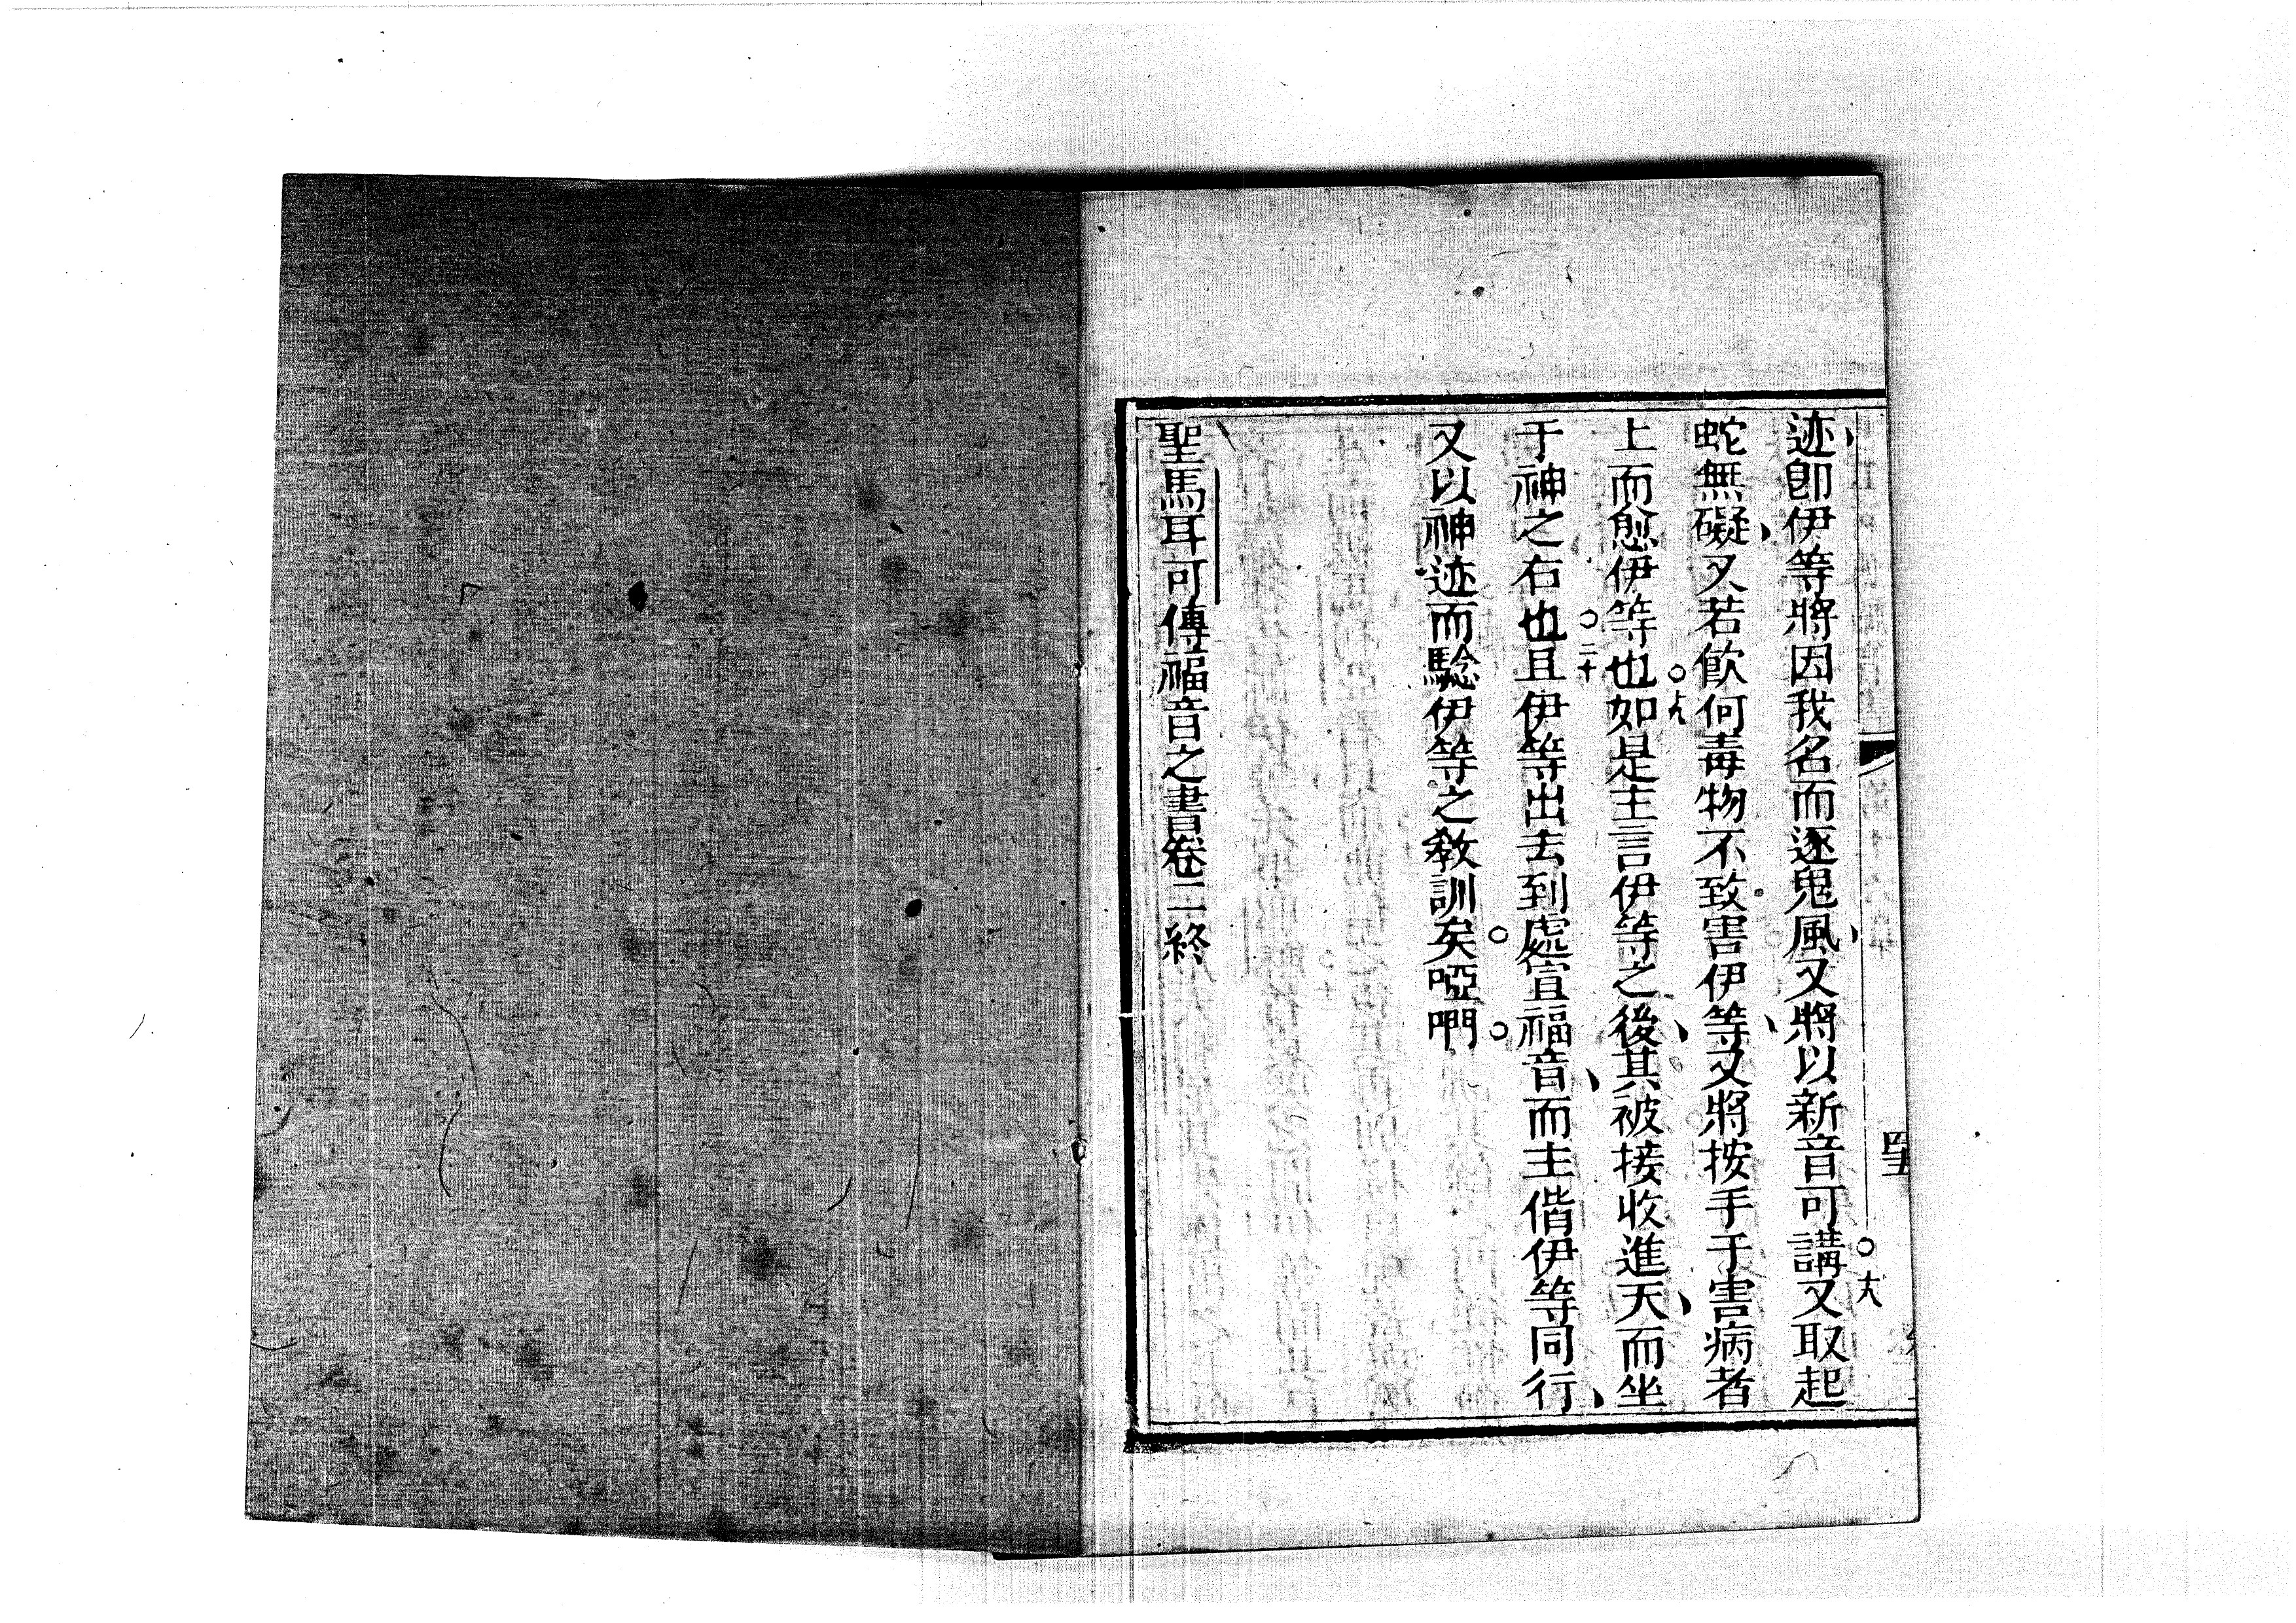 迹、卽伊等將因我名而逐鬼風、又將以新音可講○十八又取起
蛇無礙、又若飮何毒物不致害伊等、又將按手于害病者
上而愈伊等也○十九如是主言伊等之後、其被接收進天、而坐
于神之右也○二十且伊等出去到處宣福音、而主偕伊等同行、
又以神迹而騐伊等之敎訓矣。啞們。
聖馬耳可傳福音之書卷二終